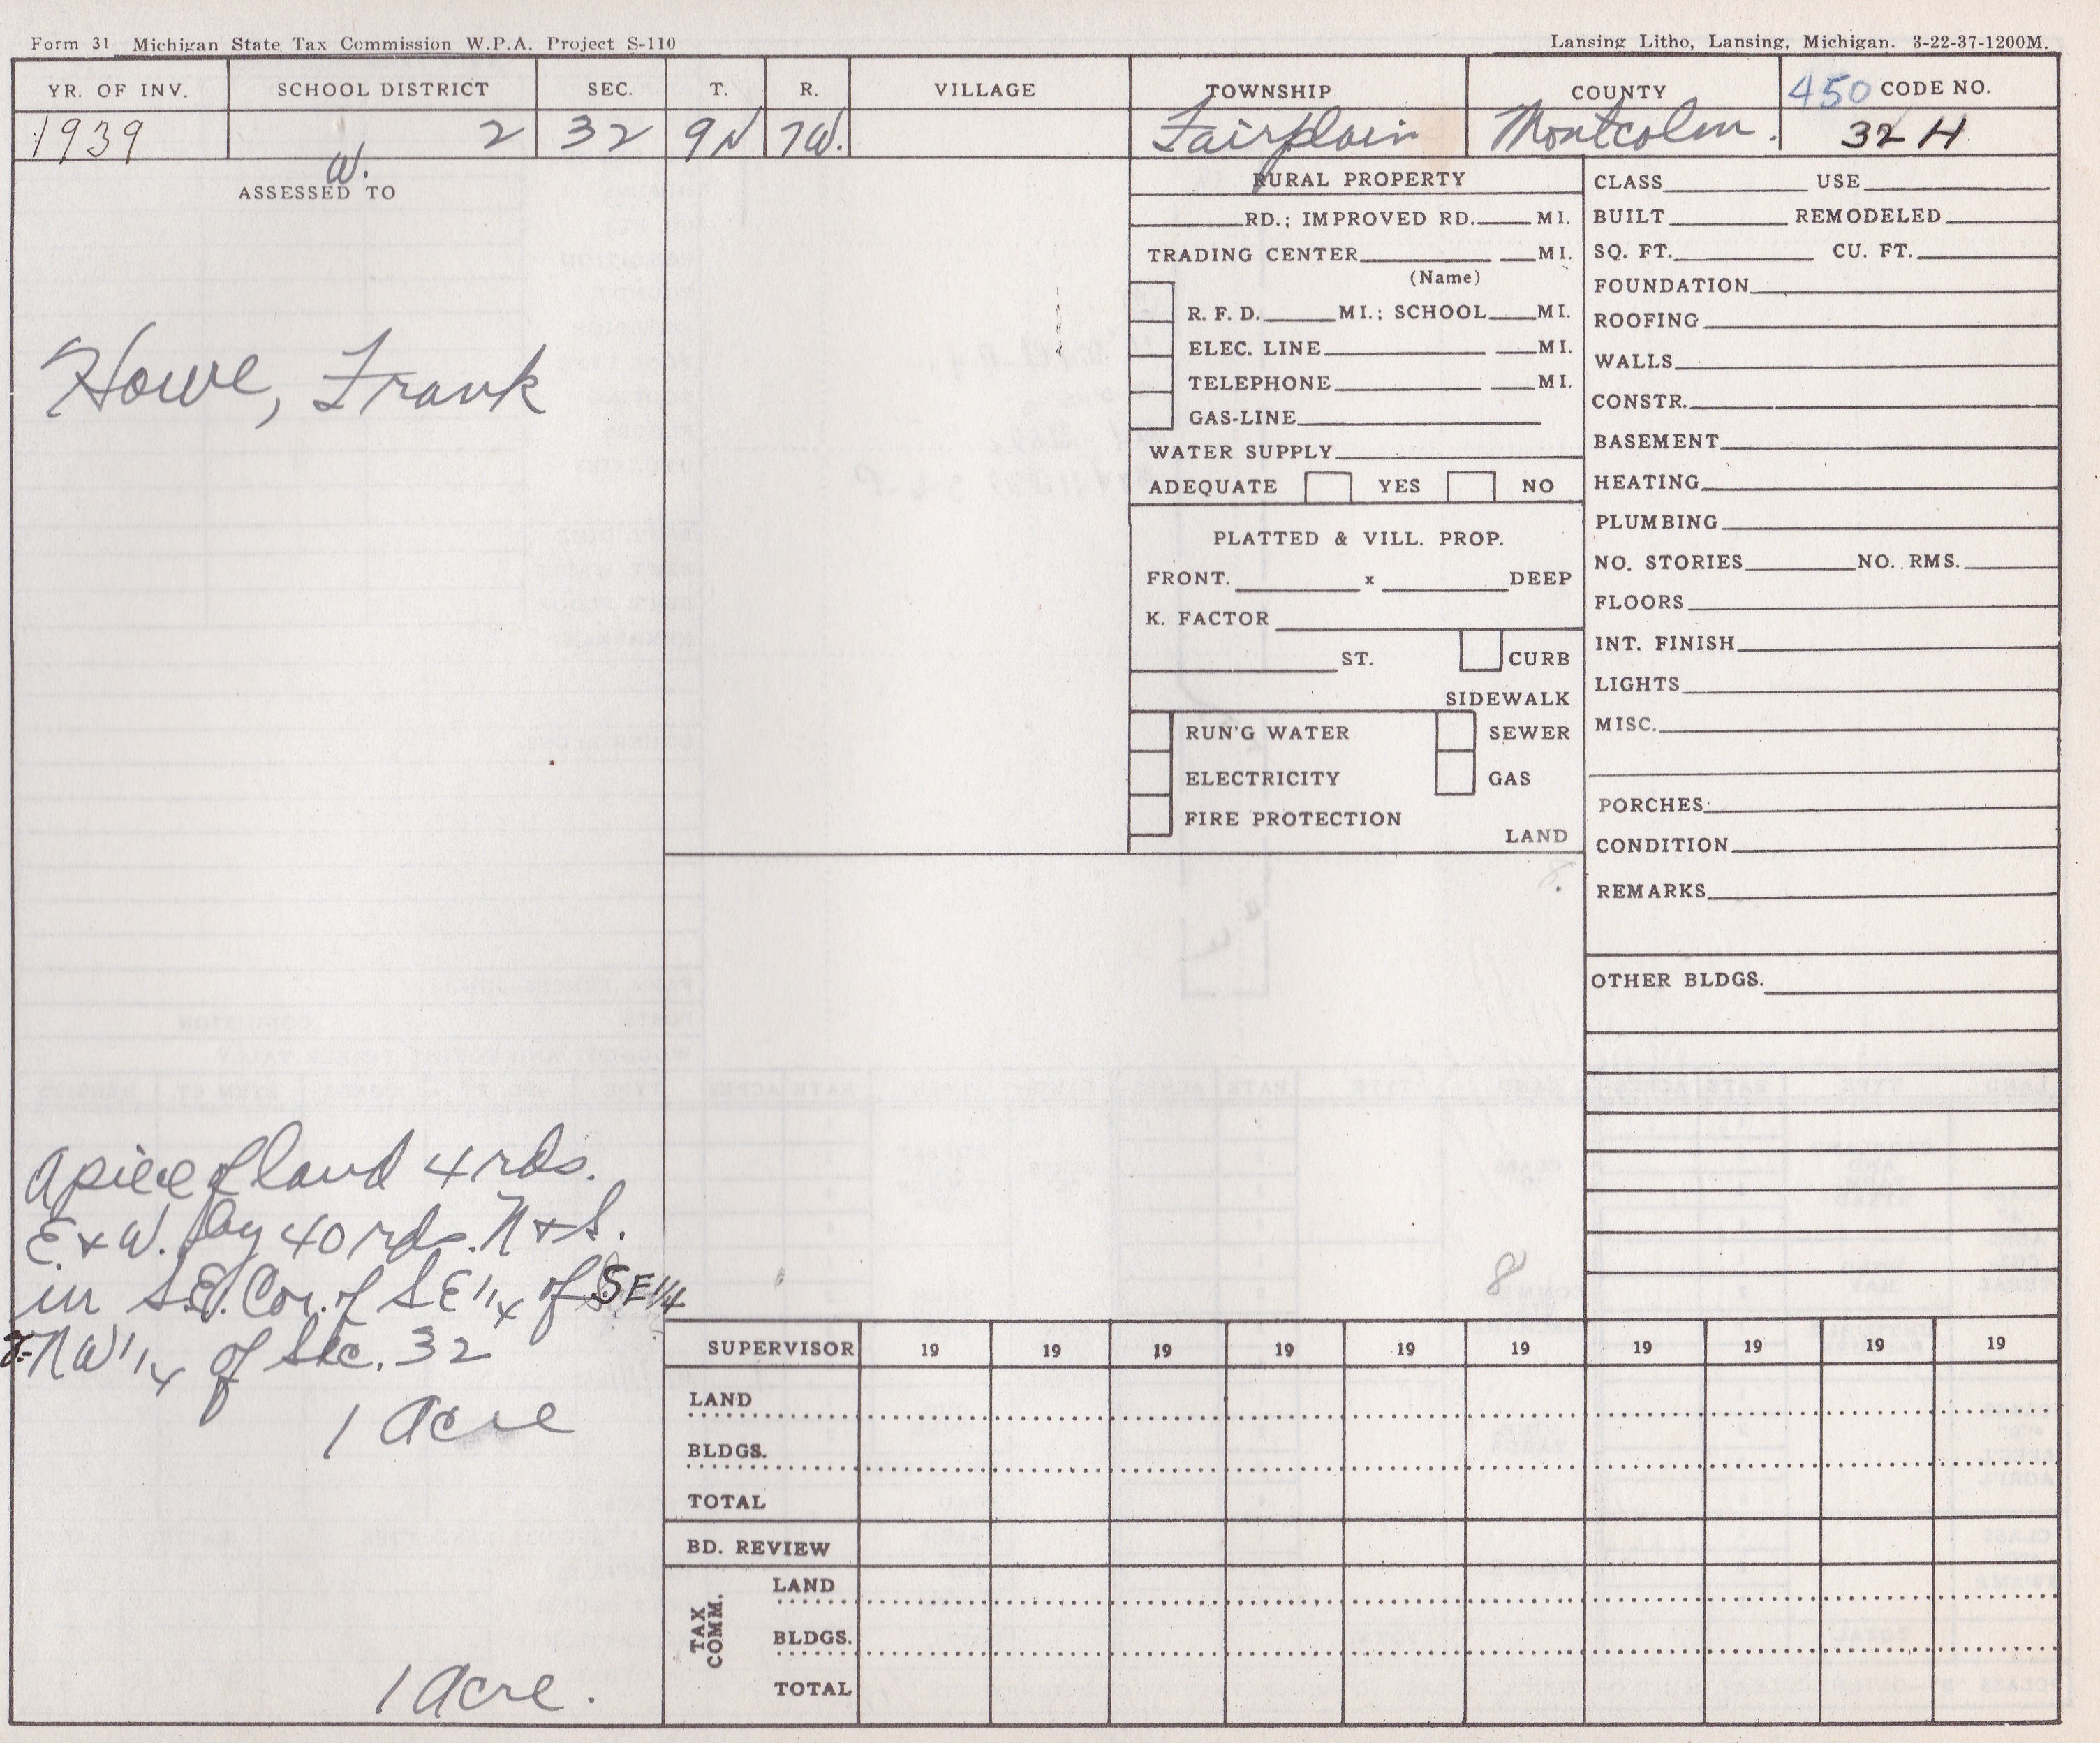 Form 31 Michigan State Tax Commission W.P.A. Project S-110
Lansing Litho, Lansing, Michigan. 3-22-37-1200M.
YR. OF INV. SCHOOL DISTRICT SEC. T. R. VILLAGE TOWNSHIP COUNTY 450 CODE NO.
1939 2 32 9N 7W. Fairplain Montcalm. 32 H
W.
ASSESSED TO
Howe, Frank
a piece of land 4 rds.
E & W. by 40 rds. N & S.
in S.E. Cor. of SE 1/4 of SE 1/4
NW 1/4 of Sec. 32
1 Acre
1 Acre.
RURAL PROPERTY
RD.; IMPROVED RD. MI.
TRADING CENTER MI.
(Name)
R. F. D. MI.; SCHOOL MI.
ELEC. LINE MI.
TELEPHONE MI.
GAS-LINE
WATER SUPPLY
ADEQUATE YES NO
PLATTED & VILL. PROP.
FRONT. x DEEP
K. FACTOR
ST. CURB
SIDEWALK
RUN'G WATER SEWER
ELECTRICITY GAS
FIRE PROTECTION
LAND
8
CLASS USE
BUILT REMODELED
SQ. FT. CU. FT.
FOUNDATION
ROOFING
WALLS
CONSTR.
BASEMENT
HEATING
PLUMBING
NO. STORIES NO. RMS.
FLOORS
INT. FINISH
LIGHTS
MISC.
PORCHES
CONDITION
REMARKS
OTHER BLDGS.
SUPERVISOR 19 19 19 19 19 19 19 19 19 19
LAND
BLDGS.
TOTAL
BD. REVIEW
TAX COMM.
LAND
BLDGS.
TOTAL